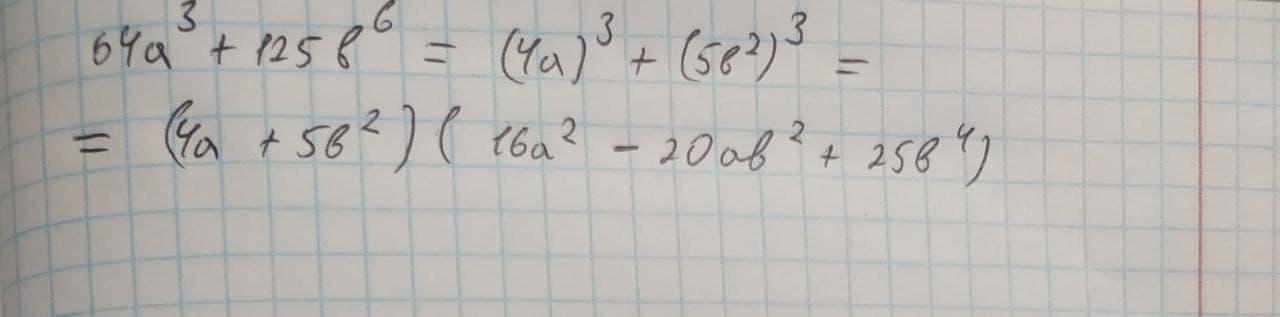 64a³ + 125b⁶ = (4a)³ + (5b²)³ =
= (4a + 5b²)(16a² - 20ab² + 25b⁴)